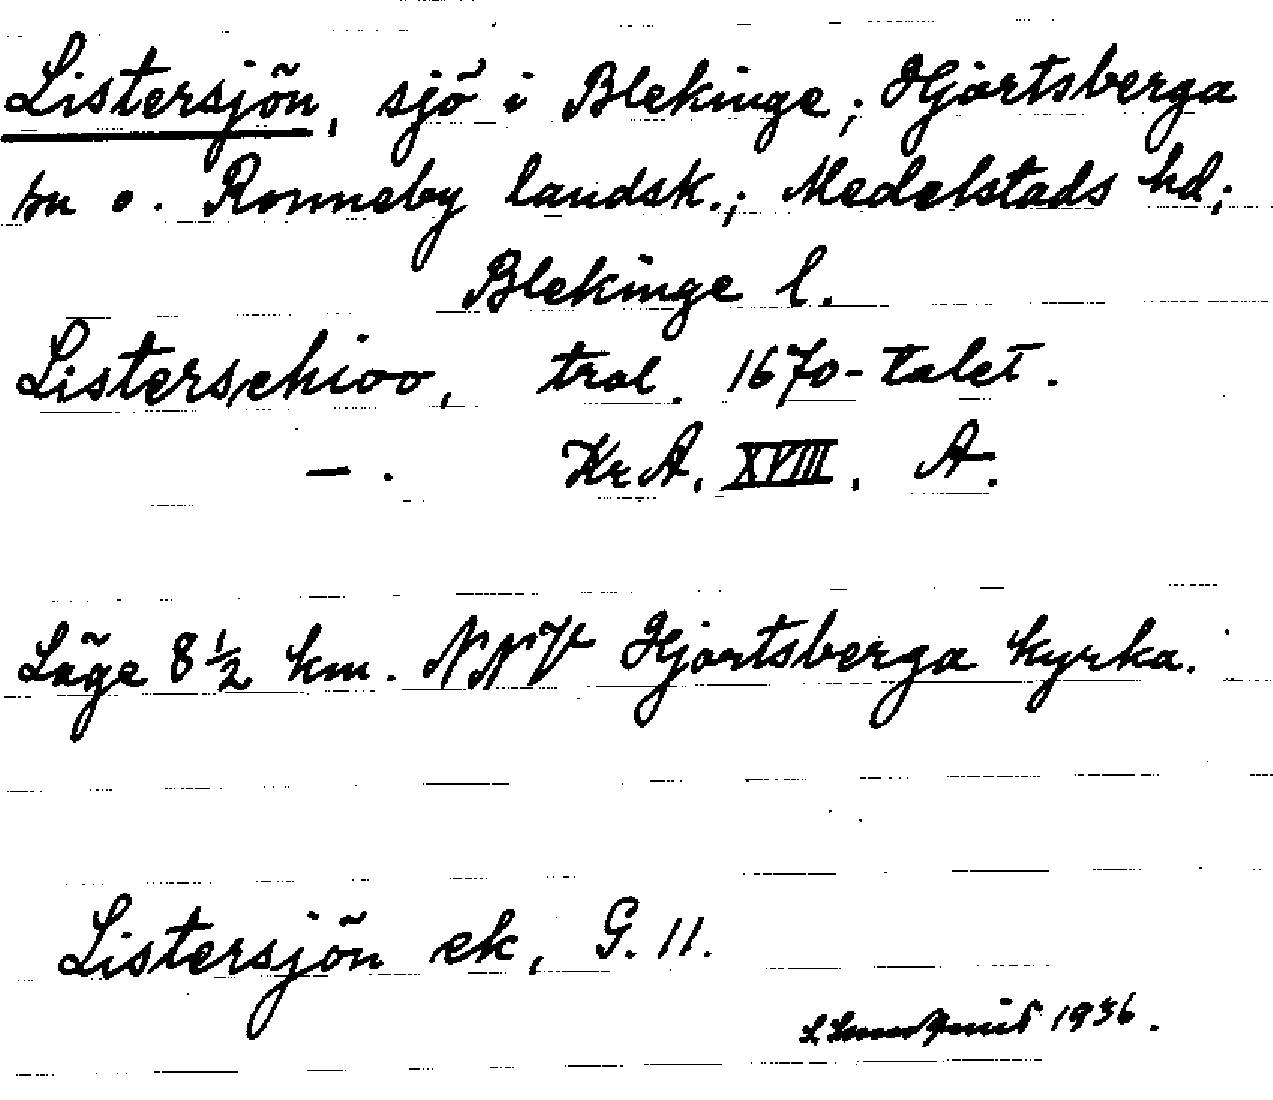 Listersjön, sjö i Blekinge; Hjortsberga
sn o. Ronneby landsk.; Medelstads hd;
Blekinge l.
Listerschioo, trol. 1670-talet.
—. KrA. XVIII. A.
Läge 8 1/2 km. NNV Hjortsberga kyrka.
Listersjön ek, G. 11.
1936.